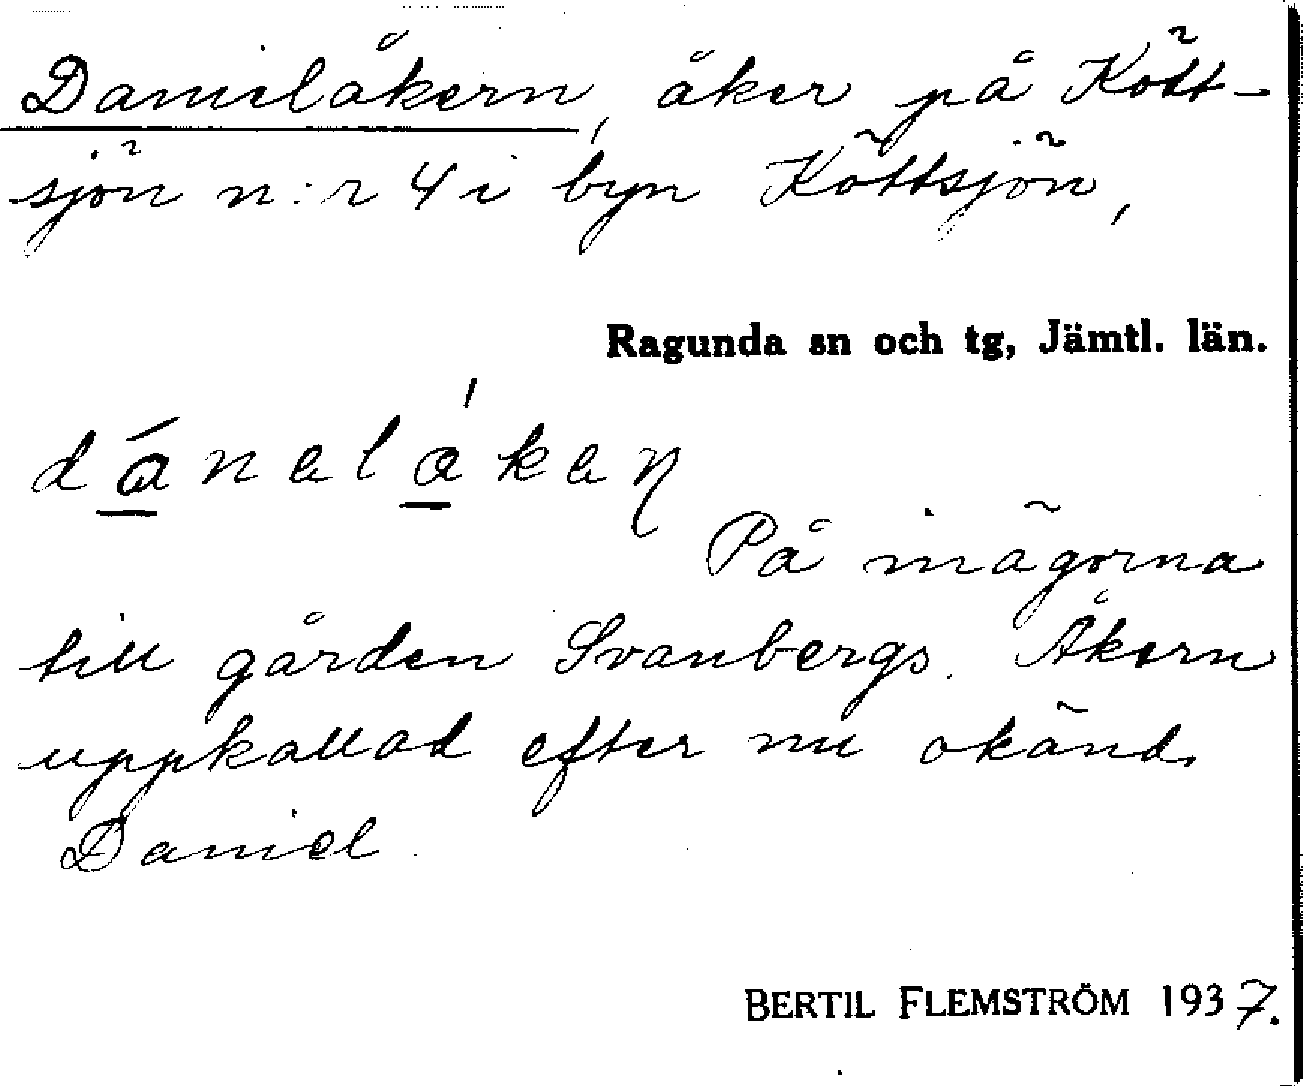 Danielåkern, åker på Kött-
sjön n:r 4 i byn Köttsjön,
Ragunda sn och tg, Jämtl. län.
På inägorna
till gården Svanbergs. Åkern
uppkallad efter nu okänd
Daniel.
BERTIL FLEMSTRÖM 1937.